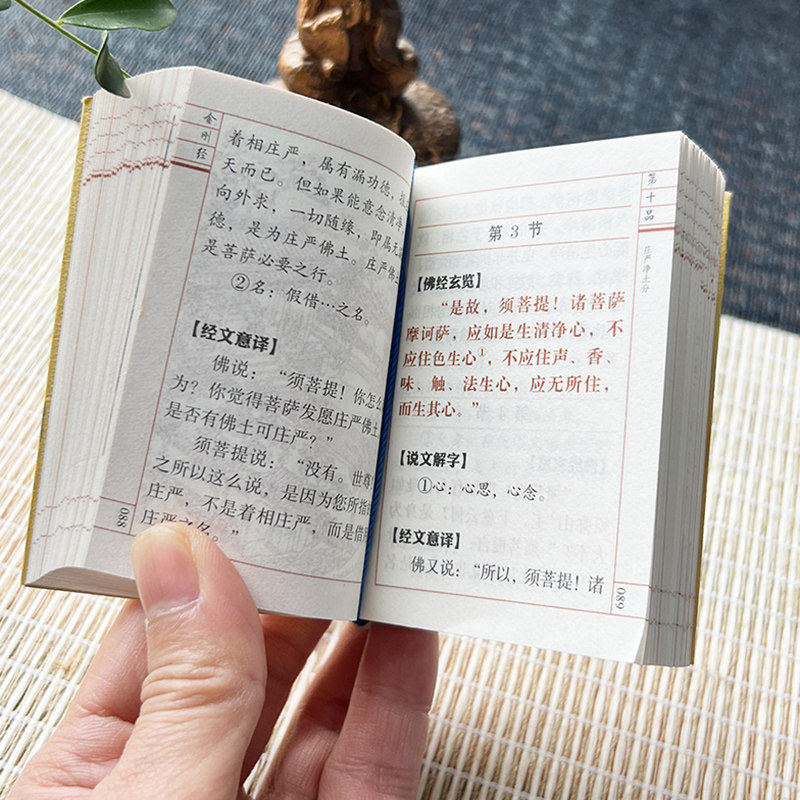 金刚经
着相庄严，属有漏功德，
天而已。但如果能意念清净
向外求，一切随缘，即属无
德，是为庄严佛土。庄严佛土
是菩萨必要之行。
②名：假借…之名。
【经文意译】
佛说：“须菩提！你怎么
为？你觉得菩萨发愿庄严佛土
是否有佛土可庄严？”
须菩提说：“没有。世尊
之所以这么说，是因为您所指
庄严，不是着相庄严，而是借
庄严之名。”
088
第十品
庄严净土分
第3节
【佛经玄览】
“是故，须菩提！诸菩萨
摩诃萨，应如是生清净心，不
应住色生心①，不应住声、香、
味、触、法生心，应无所住，
而生其心。”
【说文解字】
①心：心思，心念。
【经文意译】
佛又说：“所以，须菩提！诸
089